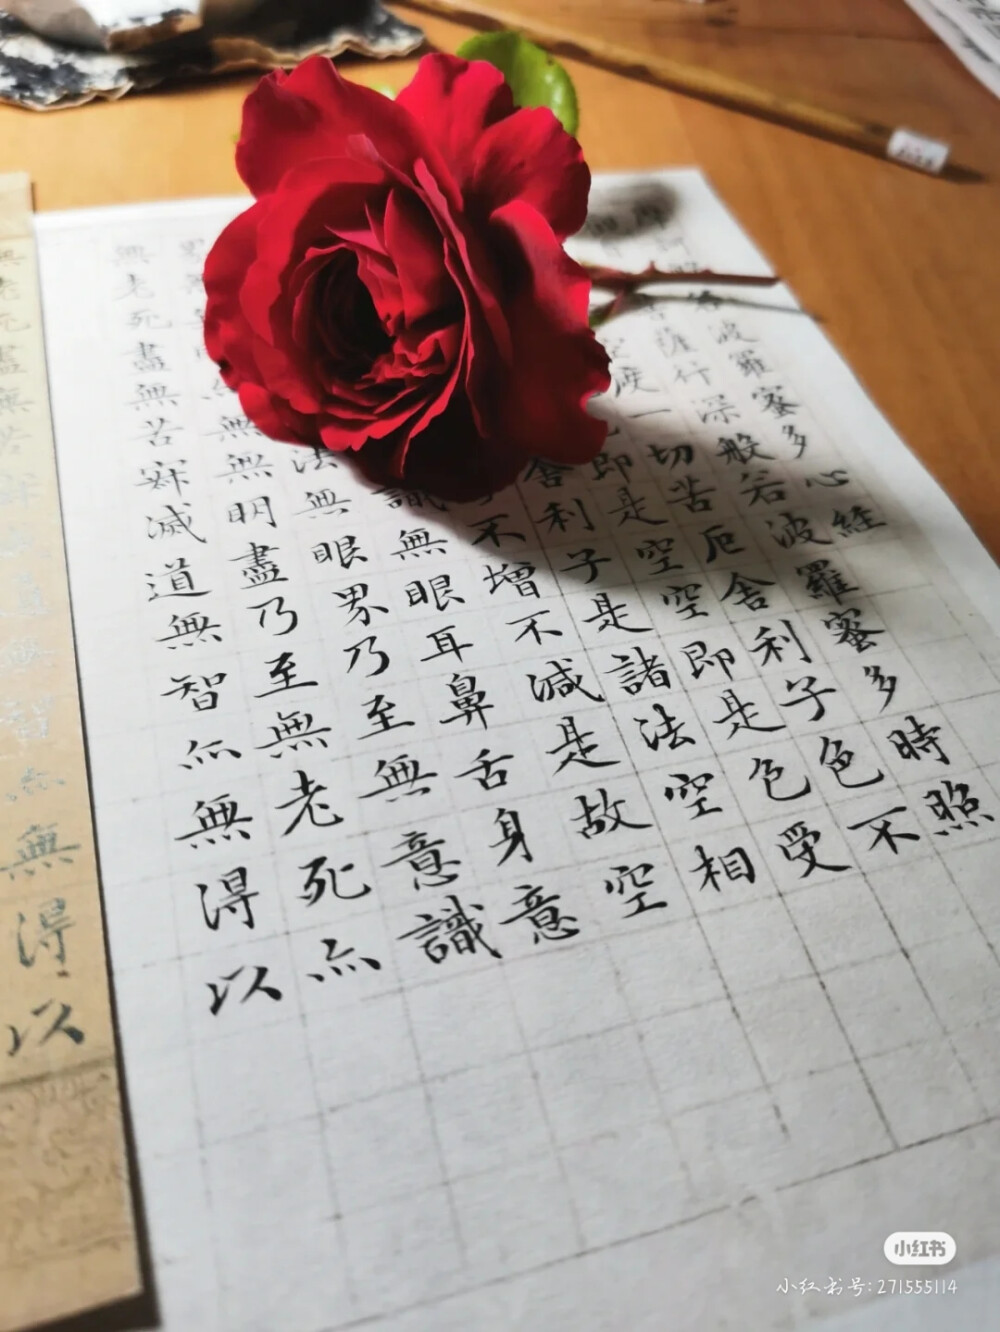 訶般若波羅蜜多心經
菩薩行深般若波羅蜜多時照
空度一切苦厄舍利子色不
即是空空即是色受
舍利子是諸法空相
不增不減是故空
識無眼耳鼻舌身意
法無眼界乃至無意識
無無明盡乃至無老死亦
無老死盡無苦滅道無智亦無得以
無老死盡無苦道無智亦無得以
小红书
小红书号:271555114